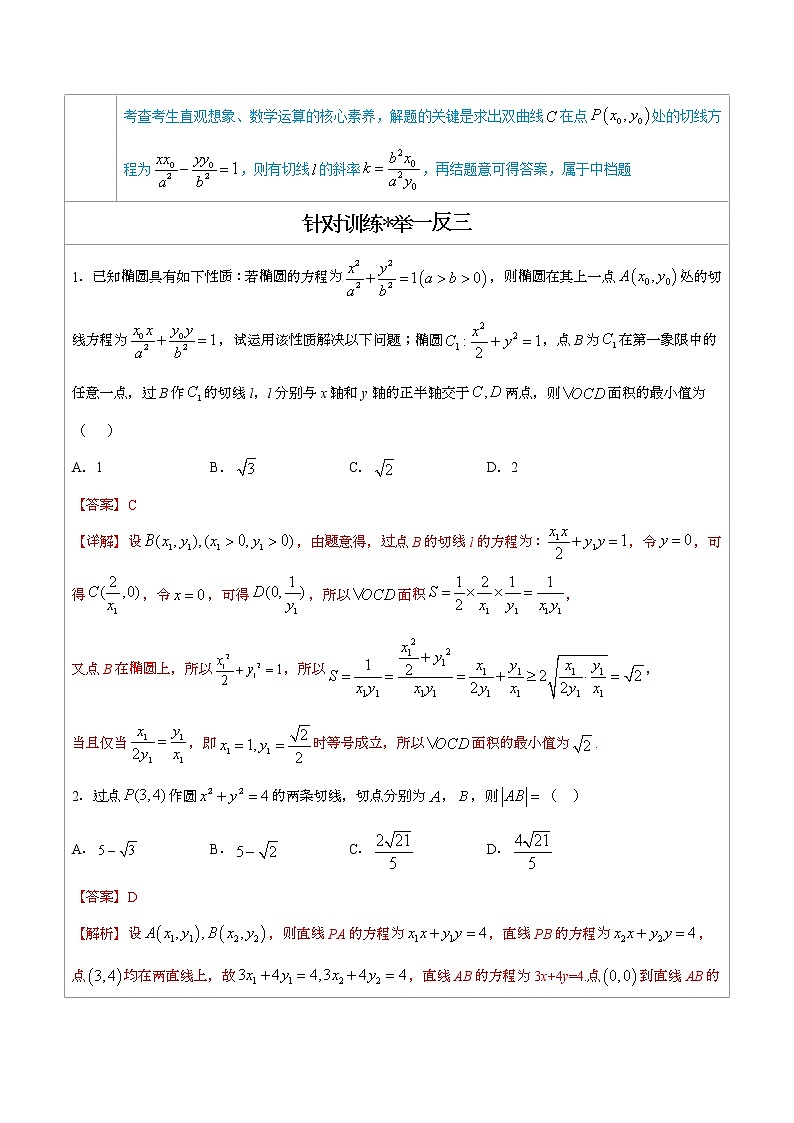 考查考生直观想象、数学运算的核心素养，解题的关键是求出双曲线 $C$ 在点 $P(x_0, y_0)$ 处的切线方
程为 $\frac{xx_0}{a^2} - \frac{yy_0}{b^2} = 1$，则有切线 $l$ 的斜率 $k = \frac{b^2 x_0}{a^2 y_0}$，再结题意可得答案，属于中档题
针对训练*举一反三
1．已知椭圆具有如下性质：若椭圆的方程为 $\frac{x^2}{a^2} + \frac{y^2}{b^2} = 1(a > b > 0)$，则椭圆在其上一点 $A(x_0, y_0)$ 处的切
线方程为 $\frac{x_0 x}{a^2} + \frac{y_0 y}{b^2} = 1$，试运用该性质解决以下问题；椭圆 $C_1: \frac{x^2}{2} + y^2 = 1$，点 B 为 $C_1$ 在第一象限中的
任意一点，过 B 作 $C_1$ 的切线 l，l 分别与 x 轴和 y 轴的正半轴交于 $C, D$ 两点，则 $\bigvee OCD$ 面积的最小值为
（　）
A．1　B．$\sqrt{3}$　C．$\sqrt{2}$　D．2
【答案】C
【详解】设 $B(x_1, y_1), (x_1 > 0, y_1 > 0)$，由题意得，过点 B 的切线 l 的方程为：$\frac{x_1 x}{2} + y_1 y = 1$，令 $y = 0$，可
得 $C(\frac{2}{x_1}, 0)$，令 $x = 0$，可得 $D(0, \frac{1}{y_1})$，所以 $\bigvee OCD$ 面积 $S = \frac{1}{2} \times \frac{2}{x_1} \times \frac{1}{y_1} = \frac{1}{x_1 y_1}$，
又点 B 在椭圆上，所以 $\frac{x_1^2}{2} + y_1^2 = 1$，所以 $S = \frac{1}{x_1 y_1} = \frac{\frac{x_1^2}{2} + y_1^2}{x_1 y_1} = \frac{x_1}{2y_1} + \frac{y_1}{x_1} \geq 2\sqrt{\frac{x_1}{2y_1} \cdot \frac{y_1}{x_1}} = \sqrt{2}$，
当且仅当 $\frac{x_1}{2y_1} = \frac{y_1}{x_1}$，即 $x_1 = 1, y_1 = \frac{\sqrt{2}}{2}$ 时等号成立，所以 $\bigvee OCD$ 面积的最小值为 $\sqrt{2}$．
2．过点 $P(3,4)$ 作圆 $x^2 + y^2 = 4$ 的两条切线，切点分别为 $A$，$B$，则 $|AB| =$（　）
A．$5 - \sqrt{3}$　B．$5 - \sqrt{2}$　C．$\frac{2\sqrt{21}}{5}$　D．$\frac{4\sqrt{21}}{5}$
【答案】D
【解析】设 $A(x_1, y_1), B(x_2, y_2)$，则直线 PA 的方程为 $x_1 x + y_1 y = 4$，直线 PB 的方程为 $x_2 x + y_2 y = 4$，
点 $(3,4)$ 均在两直线上，故 $3x_1 + 4y_1 = 4, 3x_2 + 4y_2 = 4$，直线 AB 的方程为 3x+4y=4.点 $(0,0)$ 到直线 AB 的